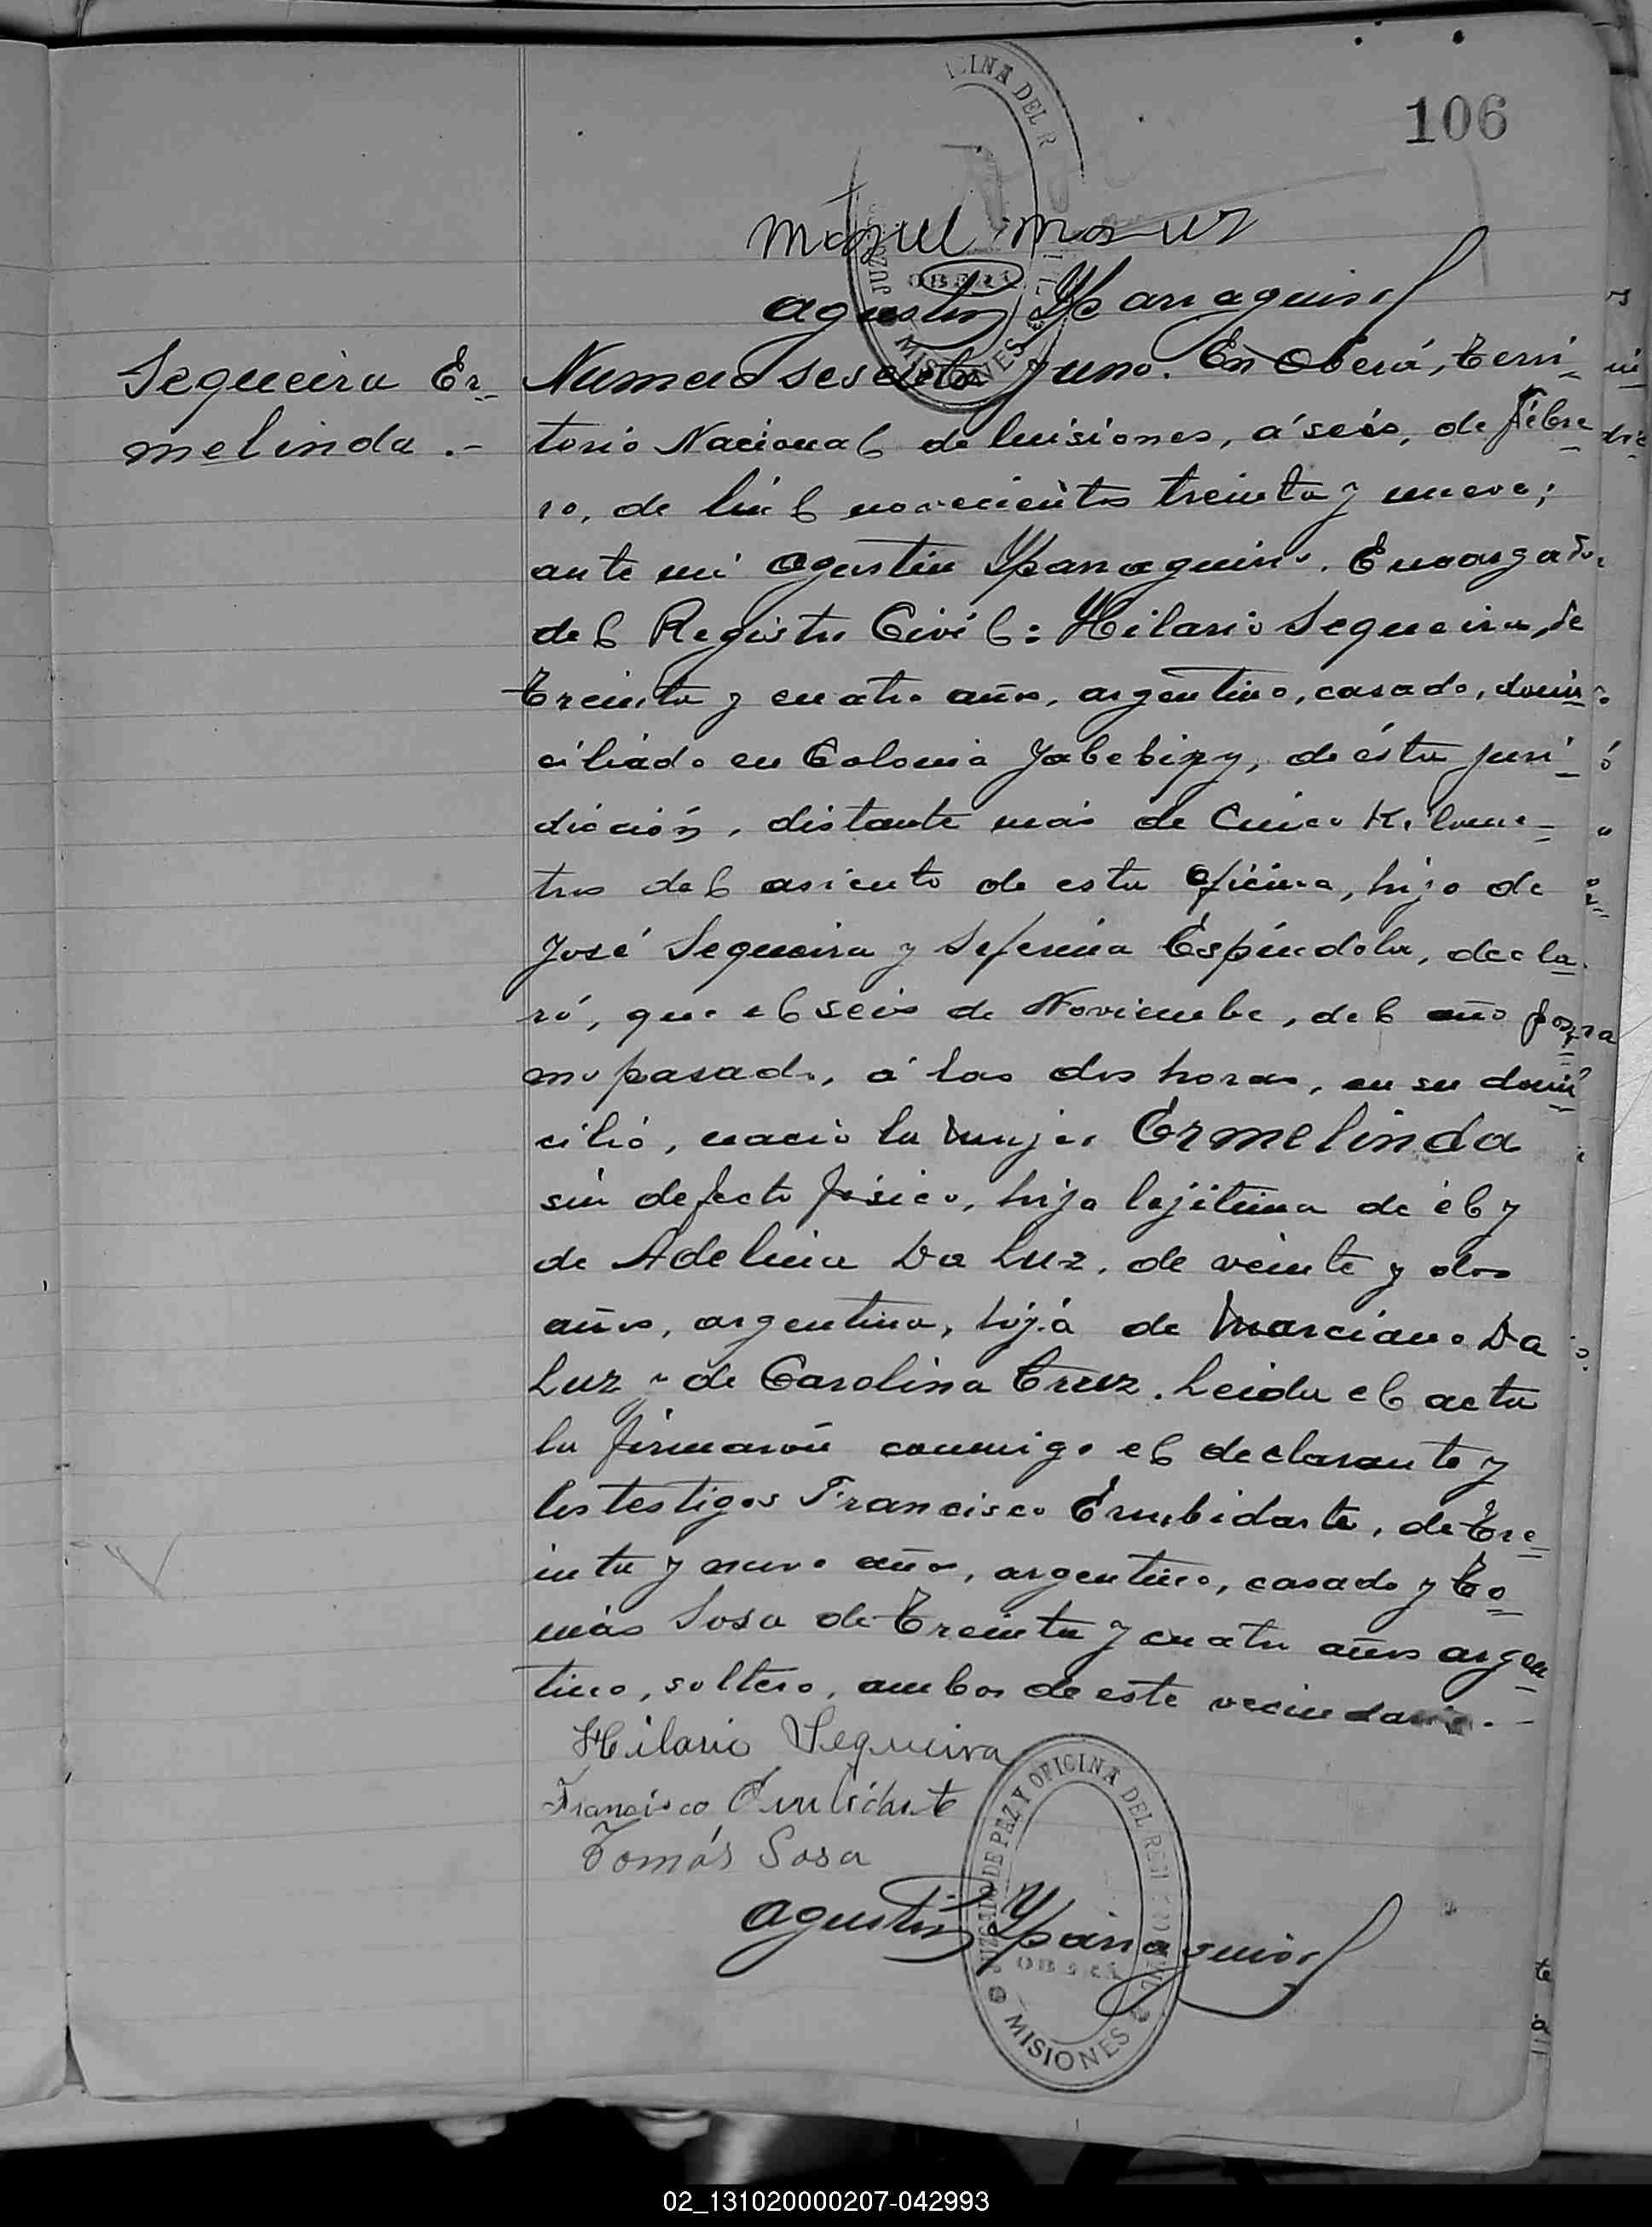 106
OFICINA DEL R
OBERÁ
MISIONES
Agustin Yparraguirre
Sequeira Er-
melinda.-
Numero sesenta y uno. En Oberá, Terri-
torio Nacional de Misiones, á seis, de Febre
ro, de Mil novecientos treinta y nueve;
ante mi Agustin Yparraguirre. Encargado
del Registro Civil: Hilario Sequeira, de
treinta y cuatro años, argentino, casado, domi-
ciliado en Colonia Yabebiry, de ésta juri-
dicción, distante más de Cinco Kilome-
tros del asiento de esta oficina, hijo de
José Sequeira y Seferina Espíndola, decla
ró, que el seis de Noviembre, del año
mo pasado, á las dos horas, en su domi
cilió, nació la mujer Ermelinda
sin defecto fisico, hija lejitima de él y
de Adelina Da Luz, de veinte y dos
años, argentina, hija de Marciano Da
Luz y de Carolina Cruz. Leida el acta
la firmarón conmigo el declarante y
los testigos Francisco Erubidarte, de tre-
inta y nueve años, argentino, casado y To-
más Sosa de treinta y cuatro años argen
tino, soltero, ambos de este vecindario.-
Hilario Sequeira
Francisco
Tomás Sosa
Agustin Yparraguirre
JUZGADO DE PAZ Y OFICINA DEL REGISTRO CIVIL
OBERÁ
MISIONES
02_131020000207-042993